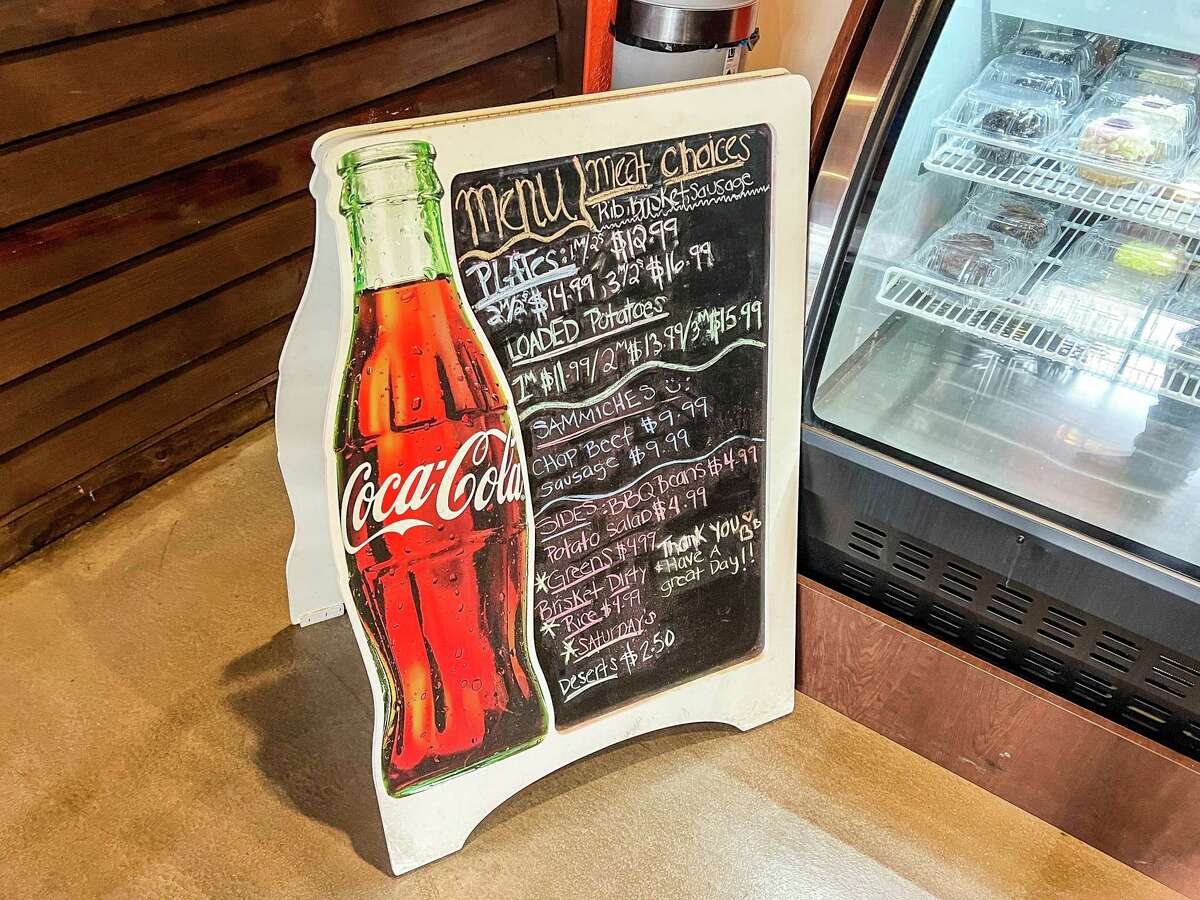 Coca-Cola
Menu
Meat Choices
Rib, brisket, sausage
PLATES: 1M/2s $12.99
2M/2s $14.99, 3M/2s $16.99
LOADED Potatoes
1M $11.99/2M $13.99/3M $15.99
SAMMICHES
CHOP Beef $9.99
Sausage $9.99
SIDES: BBQ Beans $4.99
Potato Salad $4.99
*Greens $4.99
Brisket Dirty
* Rice $4.99
*SATURDAY's
Deserts $2.50
Thank YOU
BB
*Have A
great Day!!